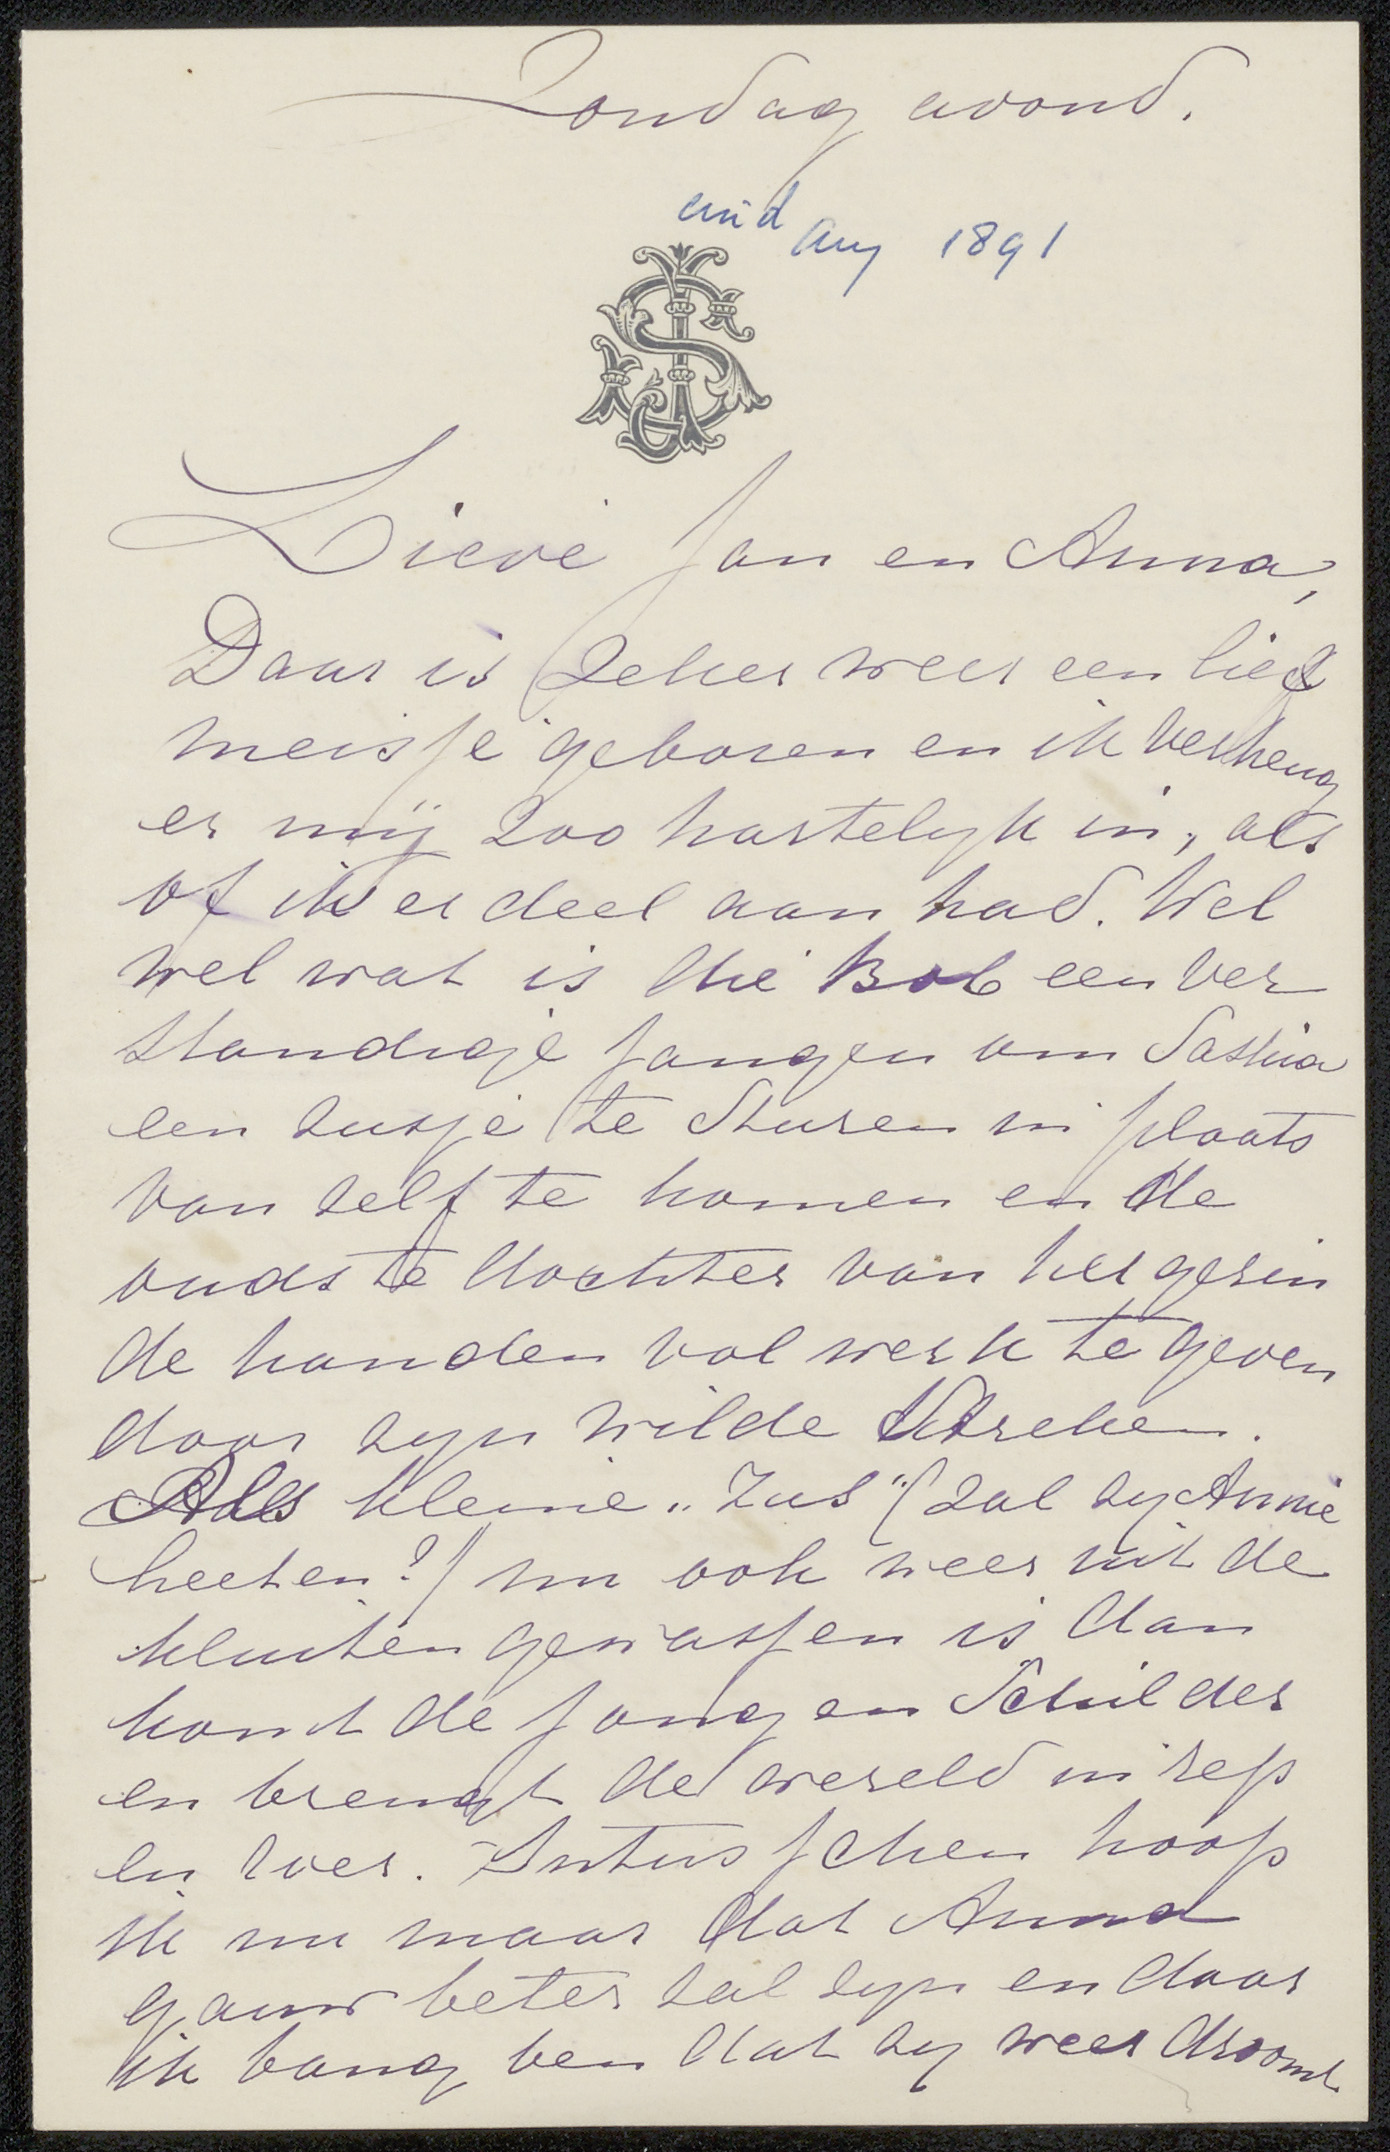 Zondag avond.
eind Aug 1891
JS
Lieve Jan en Anna,
Daar is zeker weer een lief
meisje geboren en ik verheug
er mij zoo hartelyk in, als
of ik er deel aan had. Wel
wel wat is die Bob een ver
standige jongen om Saskia
een zusje te sturen in plaats
van zelf te komen en de
oudste dochter van het gezin
de handen vol werk te geven
door zyn wilde streken.
Als kleine "Zus" (zal zy Annie
heeten?) nu ook weer uit de
kluiten gewassen is dan
komt de jongen Schilder
en brengt de wereld in rep
en roer. Intusschen hoop
ik nu maar dat Anna
gauw beter zal zyn en daar
ik bang ben dat zy weer droomt